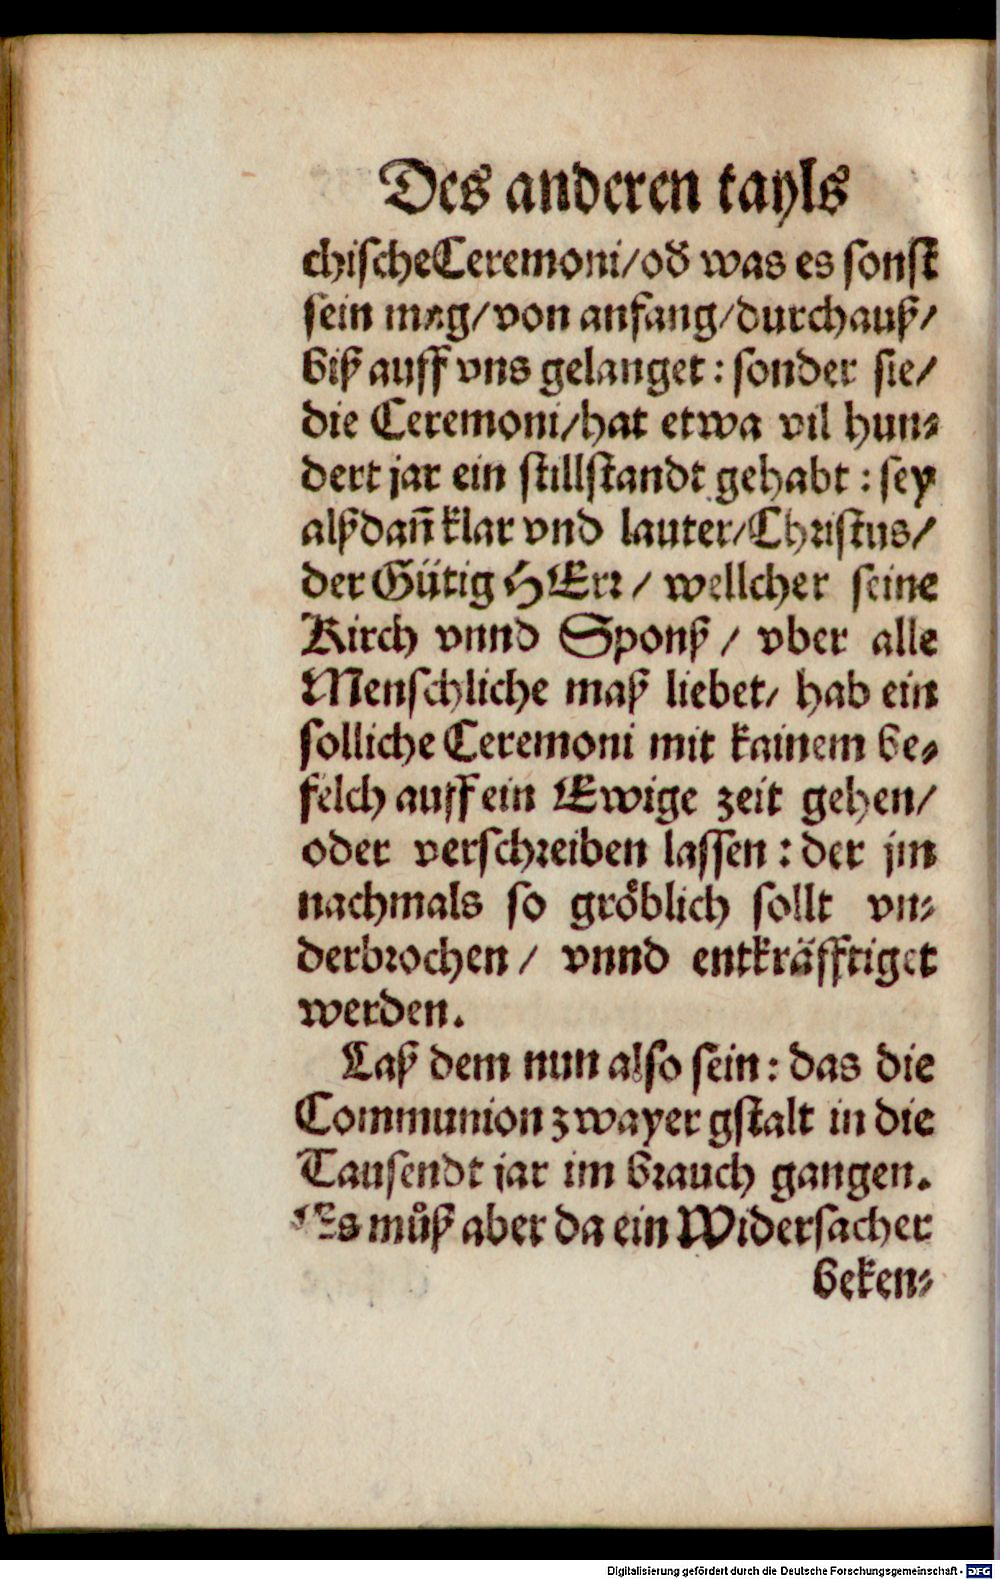 Des anderen tayls
chische Ceremoni/ ob was es sonst
sein mag/ von anfang/ durchauß/
biß auff vns gelanget: sonder sie/
die Ceremoni/ hat etwa vil hun-
dert jar ein stillstandt gehabt: sey
alßdañ klar vnd lauter/ Christus/
der Gütig HErr/ wellcher seine
Kirch vnnd Sponß/ vber alle
Menschliche maß liebet/ hab ein
solliche Ceremoni mit kainem be-
felch auff ein Ewige zeit gehen/
oder verschreiben lassen: der jm
nachmals so gröblich sollt vn-
derbrochen/ vnnd entkräfftiget
werden.
Laß dem nun also sein: das die
Communion zwayer gstalt in die
Tausendt jar im brauch gangen.
Es můß aber da ein Widersacher
beken-
Digitalisierung gefördert durch die Deutsche Forschungsgemeinschaft - DFG